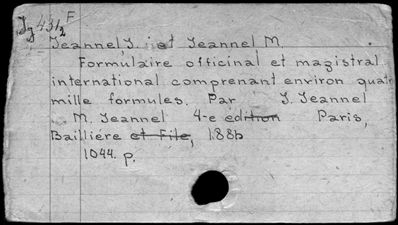 F
Jeannel, J. et Jeannel M.
Formulaire officinal et magistral
international comprenant environ quatr
mille formules. Par J. Jeannel
M. Jeannel 4-e edition Paris,
Bailliere et File, 188
1044. p.